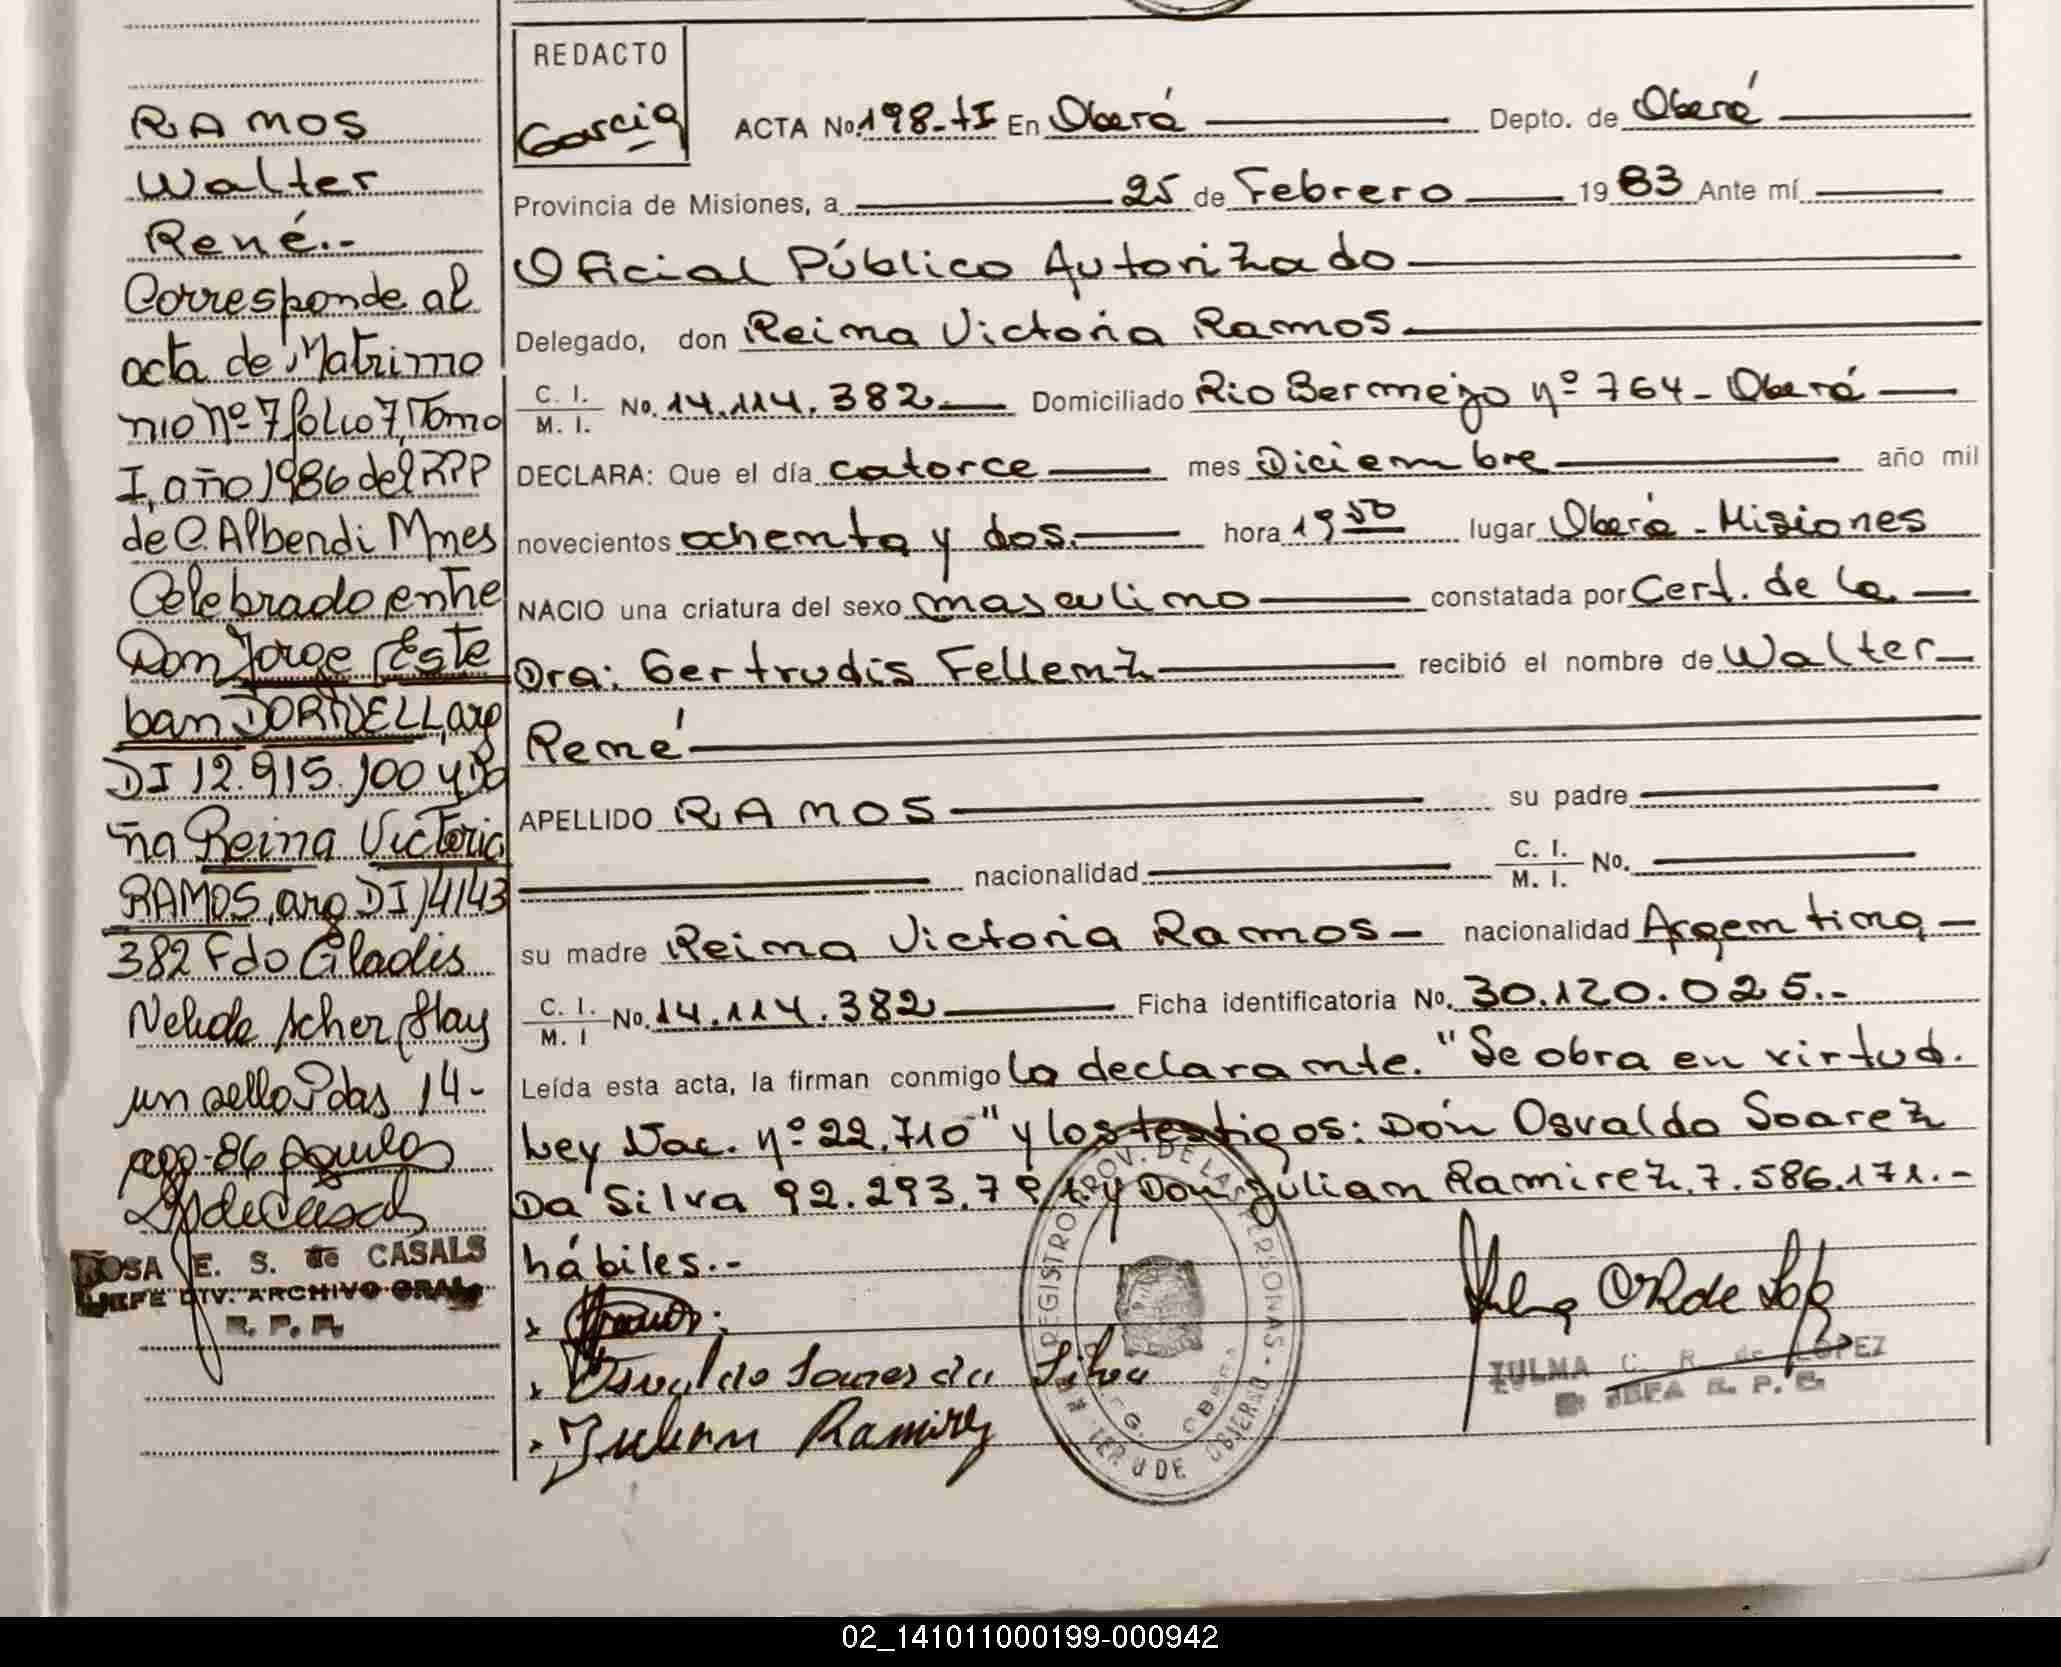 RAMOS
Walter
René.-
Corresponde al
acta de Matrimo
nio Nº 7 folio 7, Tomo
I, año 1986 del RPP
de C. Albendi Mnes
Celebrado entre
Don Jorge Este
ban DORNELL, arg
DI 12.915.100 y Do
ña Reina Victoria
RAMOS, arg DI 14143
382 Fdo Gladis
Nelida Scher, Hay
un sello Pdas 14-
ago-86
ROSA E. S. de CASALS
JEFE DIV. ARCHIVO GRAL.
R. P. P.
REDACTO
Garcia
ACTA No. 198-tI En Oberá Depto. de Oberá
Provincia de Misiones, a 25 de Febrero 1983 Ante mí
Oficial Público Autorizado
Delegado, don Reina Victoria Ramos
C. I. M. I. No. 14.114.382 Domiciliado Rio Bermejo nº 764 - Oberá
DECLARA: Que el día catorce mes Diciembre año mil
novecientos ochenta y dos. hora 19 50 lugar Oberá - Misiones
NACIO una criatura del sexo masculino constatada por Cert. de la
Dra: Gertrudis Fellenz recibió el nombre de Walter
René
APELLIDO RAMOS su padre
nacionalidad C. I. M. I. No.
su madre Reina Victoria Ramos - nacionalidad Argentina -
C. I. M. I No. 14.114.382 Ficha identificatoria No. 30.120.025.-
Leída esta acta, la firman conmigo la declarante. "Se obra en virtud.
Ley Nac. nº 22.710" y los testigos: Don Osvaldo Soarez
Da Silva y Don Julian Ramirez. 7.586.171.-
hábiles.-
Ramos
Osvaldo Soares da Silva
Julian Ramirez
REGISTRO PROV. DE LAS PERSONAS
ZULMA C. R. de LOPEZ
JEFA R. P. P.
02_141011000199-000942